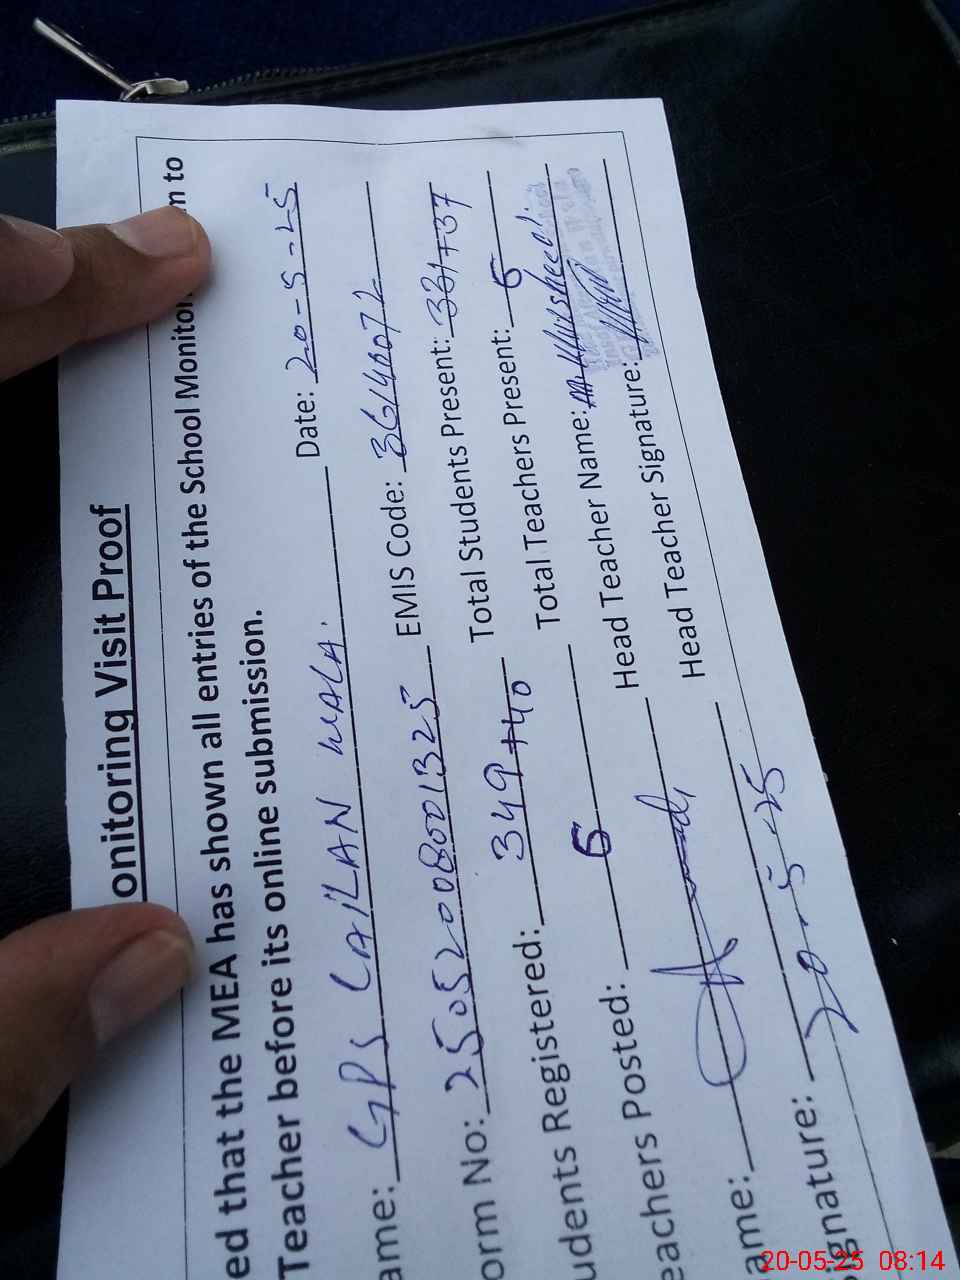 onitoring Visit Proof
ed that the MEA has shown all entries of the School Monitor m to
Teacher before its online submission.
ame: GPS LAILAN WALA. Date: 20-5-25
orm No: 25052008001325 EMIS Code: 36140072
udents Registered: 349+40 Total Students Present: 331+37
eachers Posted: 6 Total Teachers Present: 6
ame: Head Teacher Name: M. Khursheed
ignature: 20-5-25 Head Teacher Signature:
20-05-25 08:14